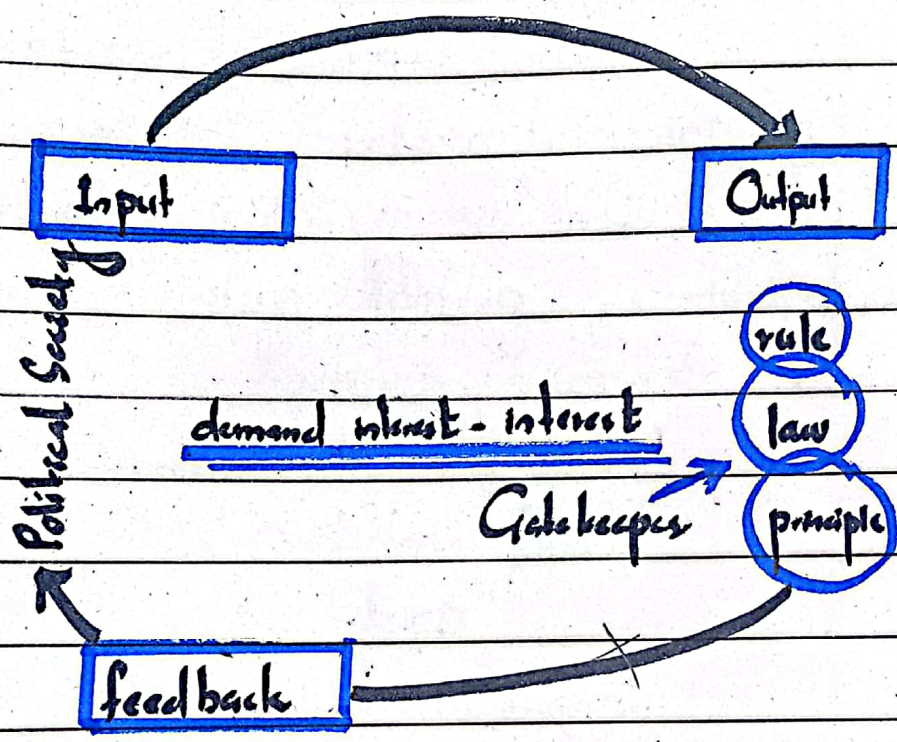 Input
Output
Political Society
rule
law
principle
demand interest - interest
Gatekeeper
feedback